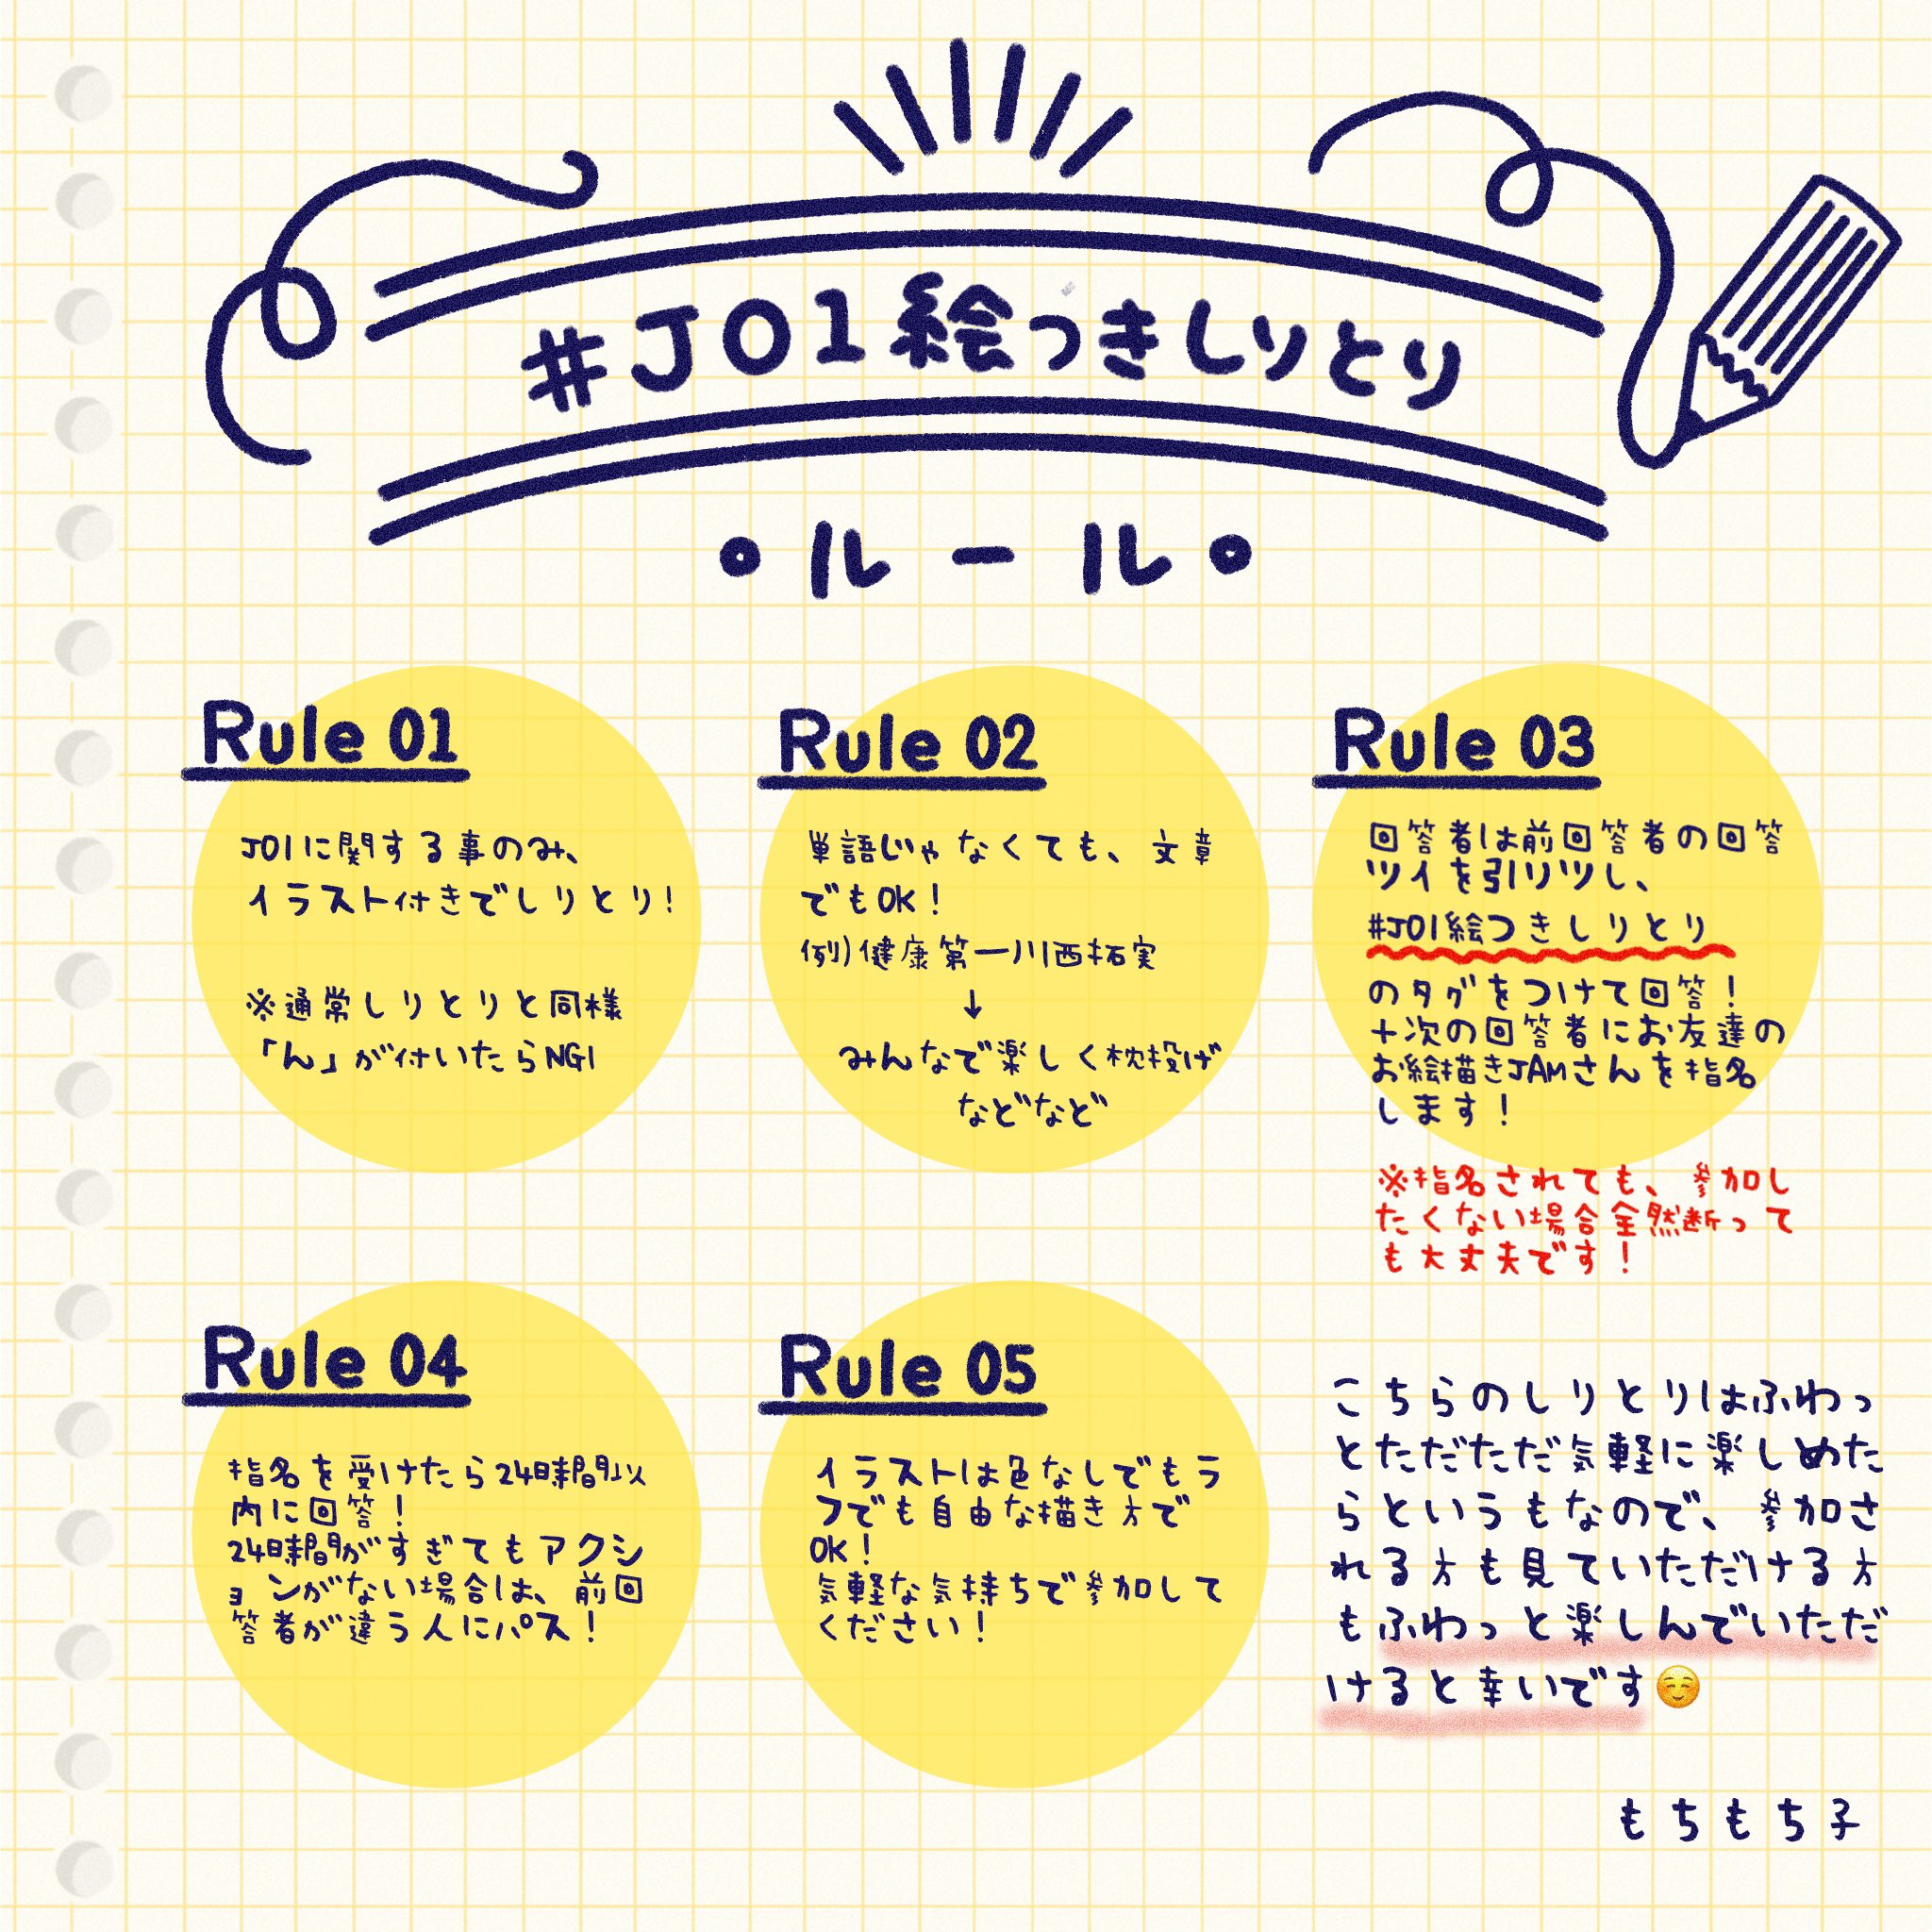 #JO1絵つきしりとり
ルール
Rule 01
JO1に関する事のみ、
イラスト付きでしりとり!
※通常しりとりと同様
「ん」が付いたらNG!
Rule 02
単語じゃなくても、文章
でもOK!
例)健康第一川西拓実
↓
みんなで楽しく枕投げ
などなど
Rule 03
回答者は前回答者の回答
ツイを引リツし、
#JO1絵つきしりとり
のタグをつけて回答!
+次の回答者にお友達の
お絵描きJAMさんを指名
します!
※指名されても、参加し
たくない場合全然断って
も大丈夫です!
Rule 04
指名を受けたら24時間以
内に回答!
24時間がすぎてもアクシ
ョンがない場合は、前回
答者が違う人にパス!
Rule 05
イラストは色なしでもラ
フでも自由な描き方で
OK!
気軽な気持ちで参加して
ください!
こちらのしりとりはふわっ
とただただ気軽に楽しめた
らというもなので、参加さ
れる方も見ていただける方
もふわっと楽しんでいただ
けると幸いです☺️
もちもち子